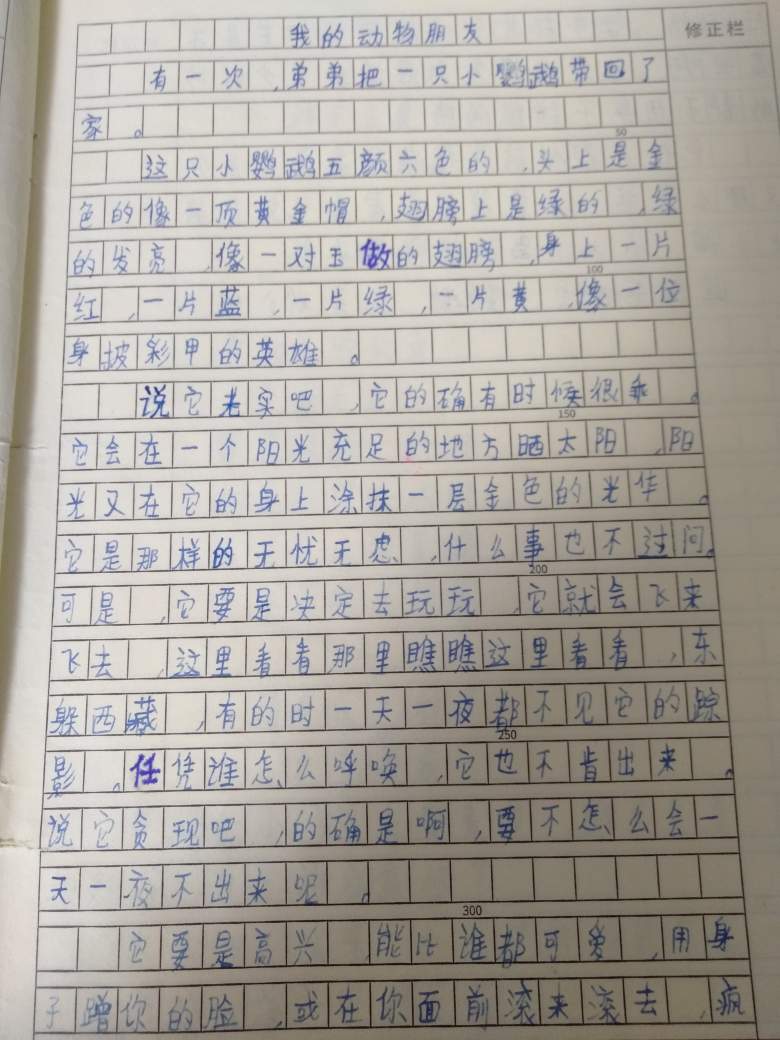 修正栏
我的动物朋友
有一次,弟弟把一只小鹦鹉带回了
家。
50
这只小鹦鹉五颜六色的,头上是金
色的像一顶黄金帽,翅膀上是绿的,绿
的发亮,像一对玉做的翅膀,身上一片
100
红,一片蓝,一片绿,一片黄,像一位
身披彩甲的英雄。
说它老实吧,它的确有时候很乖。
150
它会在一个阳光充足的地方晒太阳,阳
光又在它的身上涂抹一层金色的光华。
它是那样的无忧无虑,什么事也不过问。
200
可是,它要是决定去玩玩,它就会飞来
飞去,这里看看那里瞧瞧这里看看,东
躲西藏,有的时一天一夜都不见它的踪
250
影。任凭谁怎么呼唤,它也不肯出来。
说它贪现吧,的确是啊,要不怎么会一
天一夜不出来呢。
300
它要是高兴,能比谁都可爱,用身
子蹭你的脸,或在你面前滚来滚去,疯